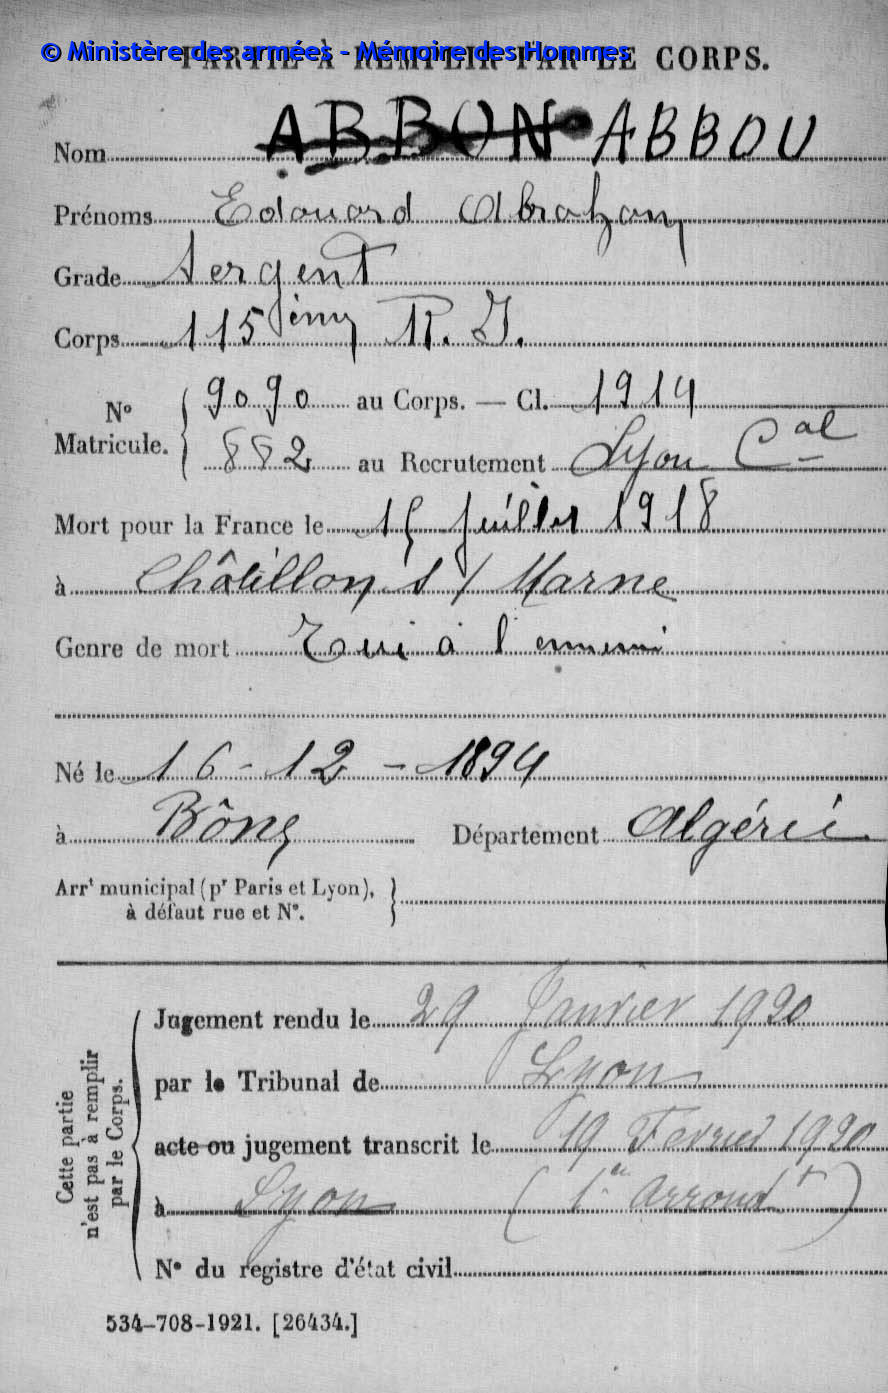 © Ministère des armées - Mémoire des Hommes
PARTIE À REMPLIR PAR LE CORPS.
Nom ABBON ABBOU
Prénoms Edouard Abraham
Grade Sergent
Corps 115ème R. I.
No Matricule. 9090 au Corps. — Cl. 1914
882 au Recrutement Lyon Cal
Mort pour la France le 15 Juillet 1918
à Châtillon s/ Marne
Genre de mort Tué à l'ennemi
Né le 16 - 12 - 1894
à Bône Département Algérie
Arrt municipal (pr Paris et Lyon),
à défaut rue et N°.
Cette partie
n'est pas à remplir
par le Corps.
Jugement rendu le 29 Janvier 1920
par le Tribunal de Lyon
acte ou jugement transcrit le 19 Fevrier 1920
à Lyon (1er Arrondt)
N° du registre d'état civil
534-708-1921. [26434.]